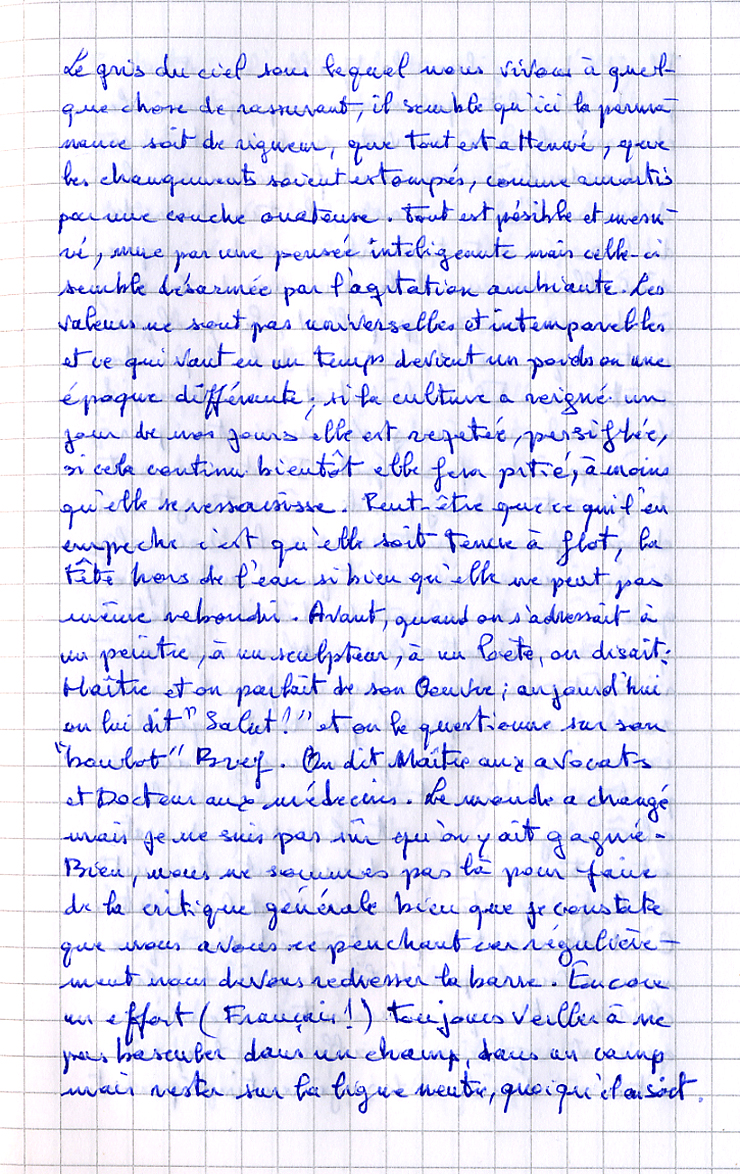 Le gris du ciel sous lequel nous vivons à quel-
que chose de rassurant, il semble qu'ici la perma-
nance soit de rigueur, que tout est attenué, que
les changements soient estompés, comme amortis
par une couche ouateuse. Tout est pésible et mesu-
ré, mue par une pensée inteligeante mais celle-ci
semble désarmée par l'agitation ambiante. Les
valeurs ne sont pas universelles et intemporelles
et ce qui vaut en un temps devient un poids en une
époque différante; si la culture a reigné un
jour de nos jours elle est rejetée, persiflée,
si cela continu bientôt elle fera pitié, à moins
qu'elle se ressaisisse. Peut-être que ce qui l'en
empèche c'est qu'elle soit tenue à flot, la
tête hors de l'eau si bien qu'elle ne peut pas
même rebondir. Avant, quand on s'adressait à
un peintre, à un sculpteur, à un Poète, on disait:
Maître et on parlait de son Oeuvre; aujourd'hui
on lui dit "Salut!" et on le questionne sur son
"boulot" Bref. On dit Maître aux avocats
et Docteur aux médecins. Le monde a changé
mais je ne suis pas sûr qu'on y ait gagné-
Bien, nous ne sommes pas là pour faire
de la critique générale bien que je constate
que nous avons ce penchant car régulière-
ment nous devons redresser la barre. Encore
un effort (Français!) toujours veiller à ne
pas basculer dans un champ, dans un camp
mais rester sur la ligne neutre, quoiqu'il en soit.